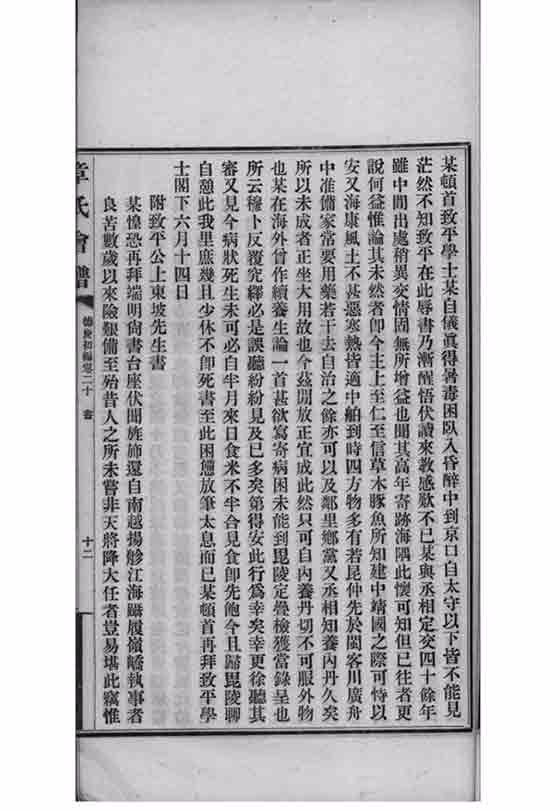 某頓首致平學士某自儀眞得暑毒困臥入昏醉中到京口自太守以下皆不能見
茫然不知致平在此辱書乃漸醒悟伏讀來敎感歎不已某與丞相定交四十餘年
雖中間出處稍異交情固無所增益也聞其高年寄跡海隅此懷可知但已往者更
說何益惟論其未然者卽今主上至仁至信草木豚魚所知建中靖國之際可恃以
安又海康風土不甚惡寒熱皆適中舶到時四方物多有若昆仲先於閩客川廣舟
中准備家常要用藥若干去自治之餘亦可以及鄰里鄉黨又丞相知養內丹久矣
所以未成者正坐大用故也今茲閒放正宜成此然只可自內養丹切不可服外物
也某在海外曾作續養生論一首甚欲寫寄病困未能到毘陵定疊檢獲當錄呈也
所云穆卜反覆究繹必是誤聽紛紛見及已多矣第得安此行爲幸矣幸更徐聽其
審又見今病狀死生未可必自半月來日食米不半合見食卽先飽今且歸毘陵聊
自憩此我里庶幾且少休不卽死書至此困憊放筆太息而已某頓首再拜致平學
士閣下六月十四日
附致平公上東坡先生書
某惶恐再拜端明尙書台座伏聞旌旆還自南越揚舲江海躡履嶺嶠執事者
良苦數歲以來險艱備至殆昔人之所未嘗非天將降大任者豈易堪此竊惟
章氏會譜
德慶初編卷二十
書
十二